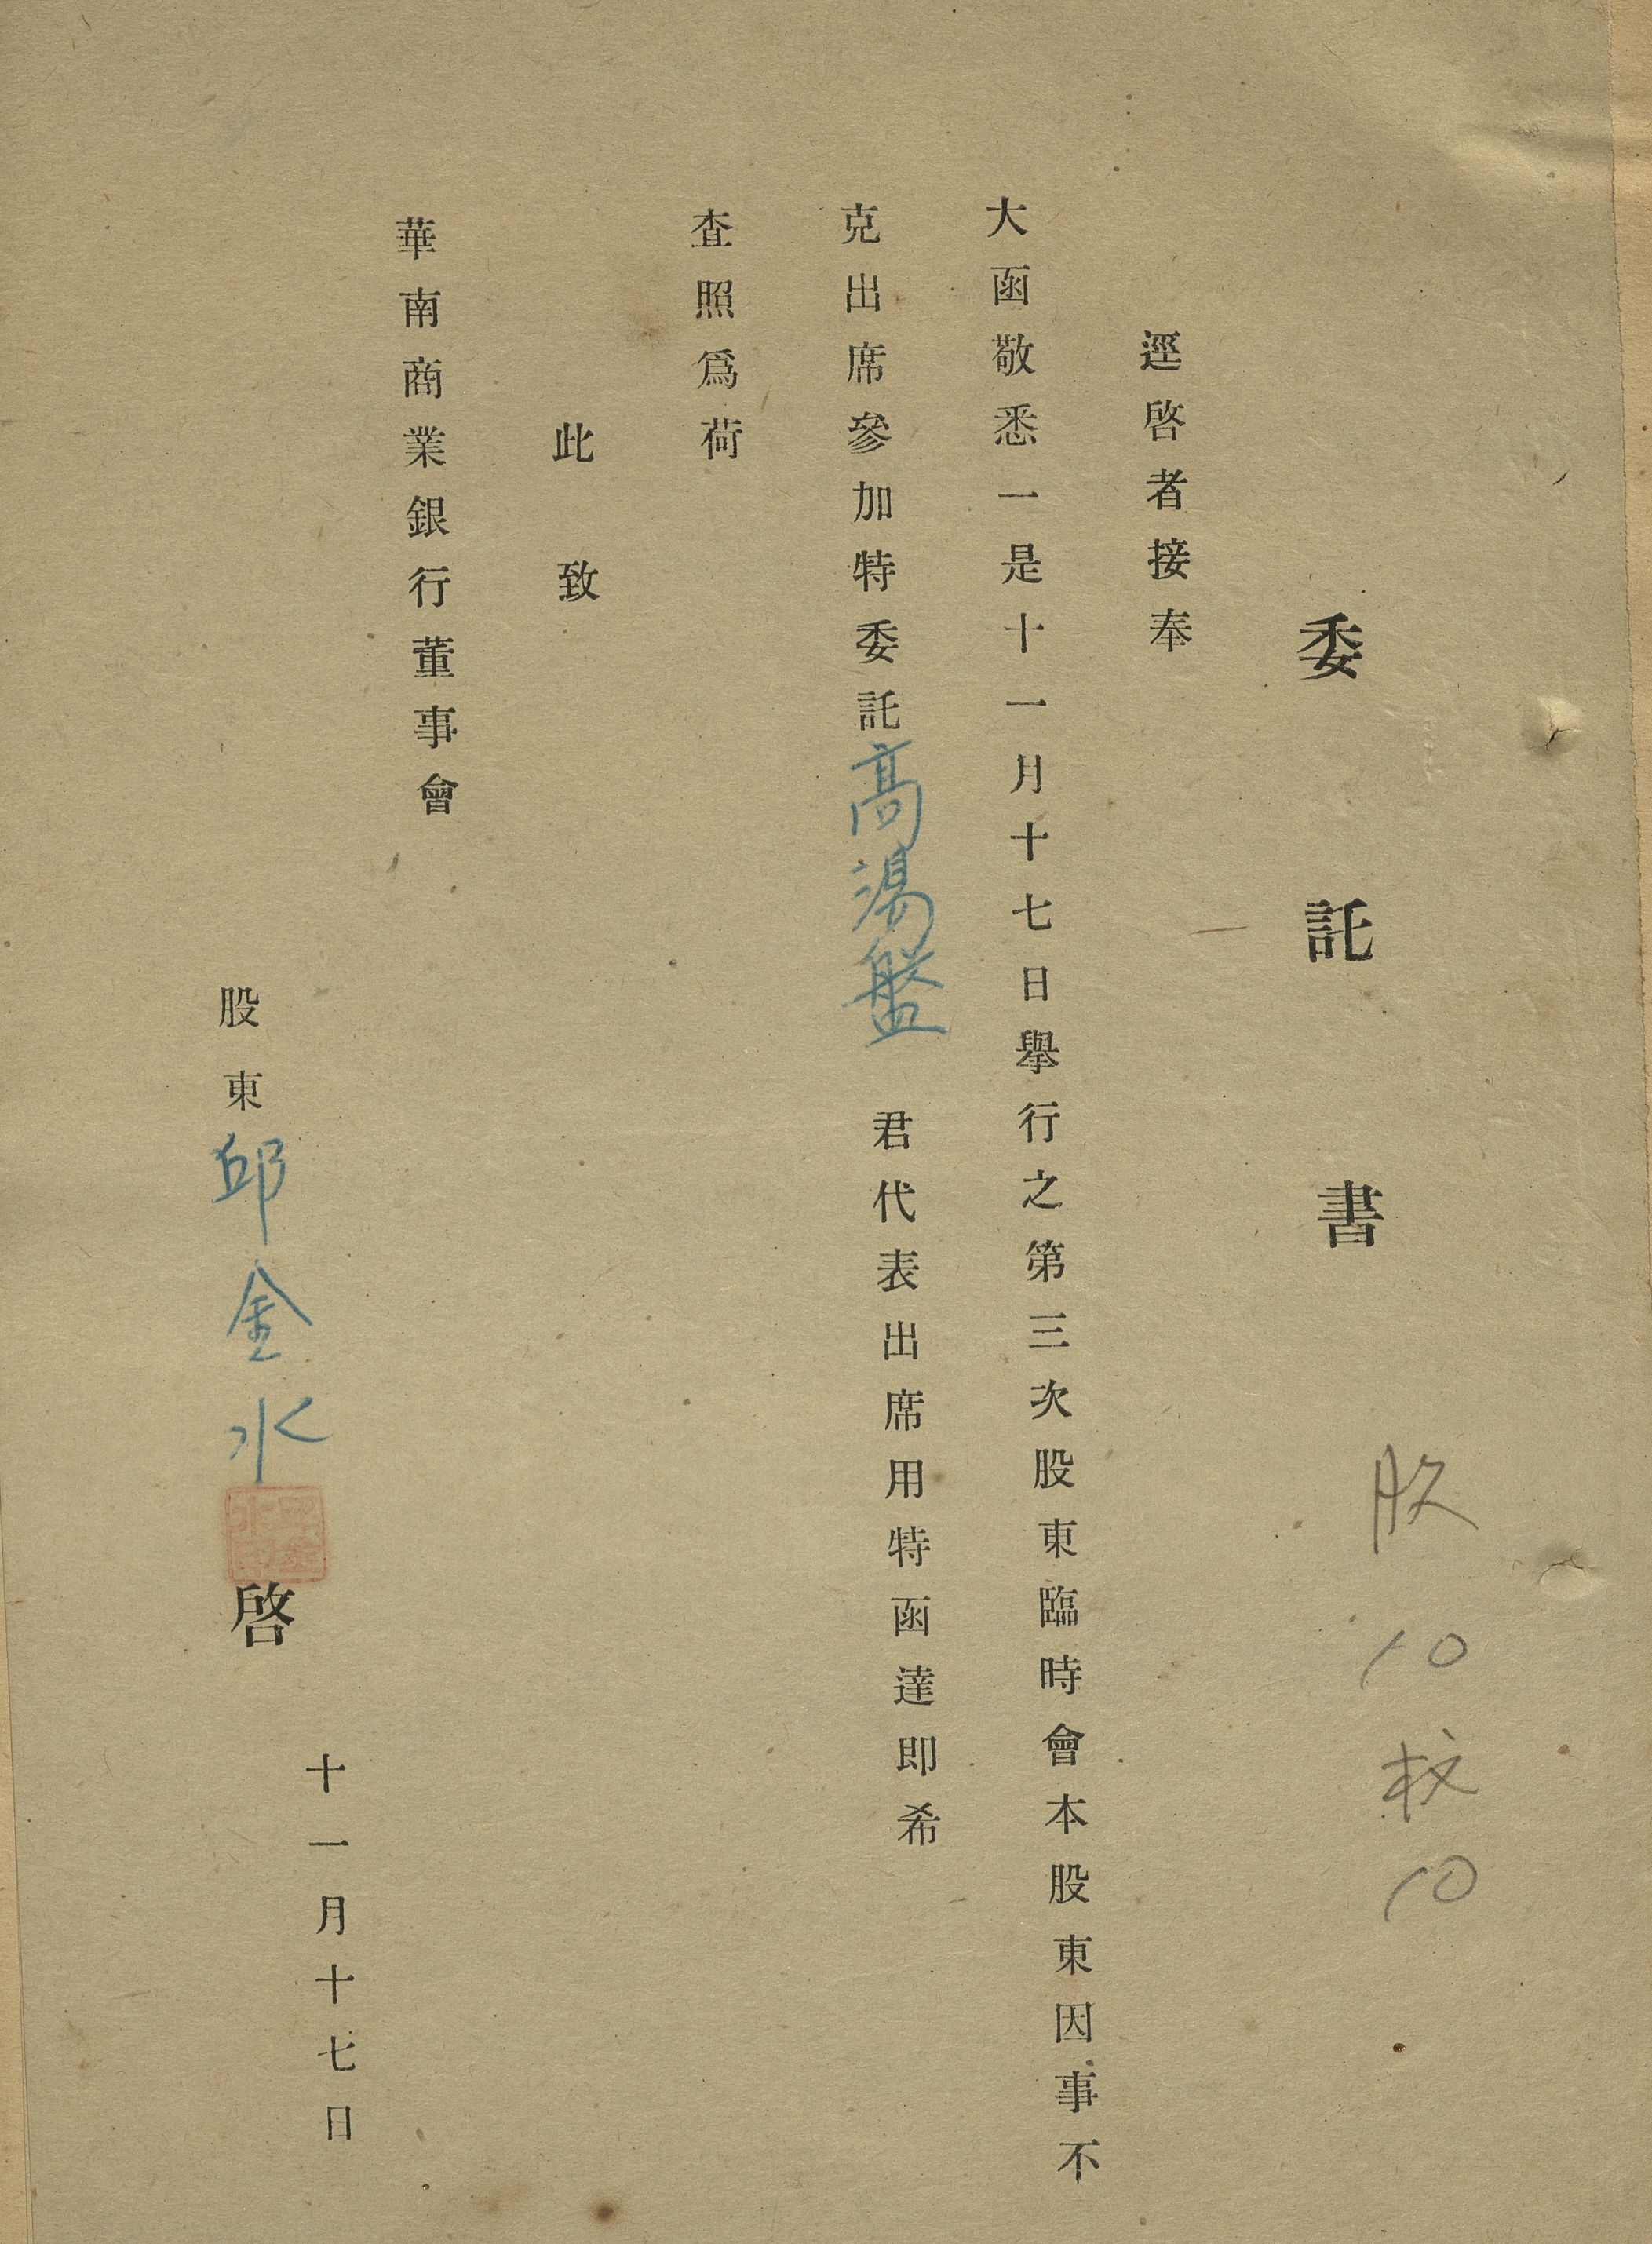 委託書
股10 权10
逕啓者接奉
大函敬悉一是十一月十七日舉行之第三次股東臨時會本股東因事不
克出席參加特委託高湯盤君代表出席用特函達即希
查照爲荷
此致
華南商業銀行董事會
十一月十七日
股東邱金水啓